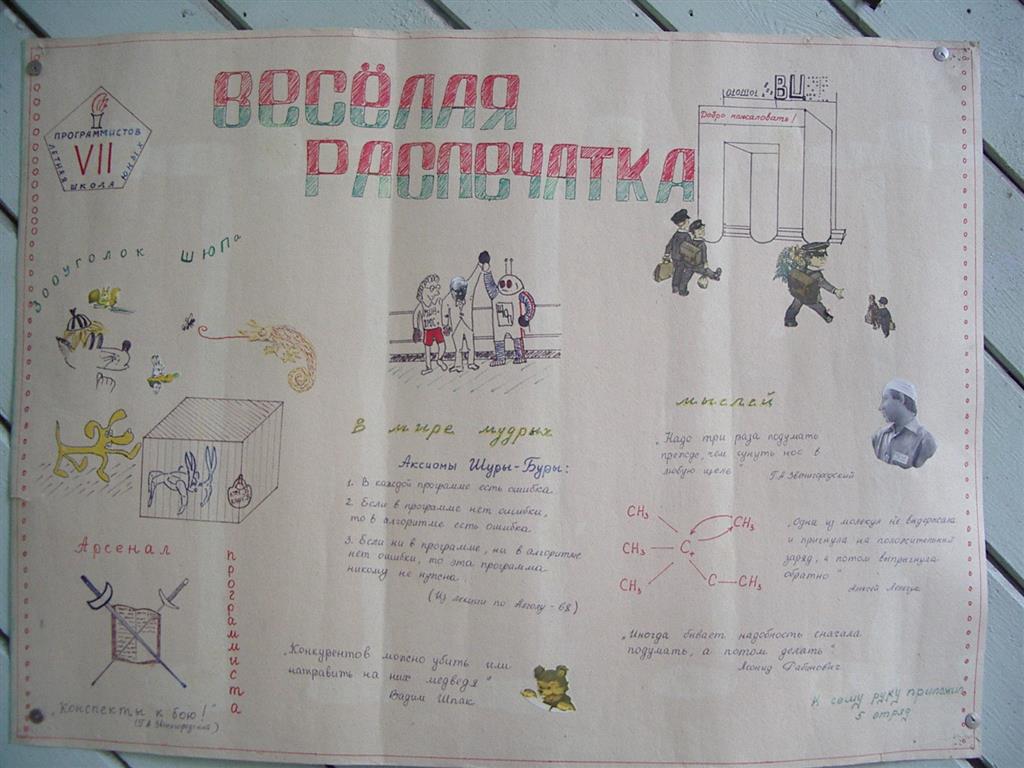 ВЕСЁЛАЯ
РАСПЕЧАТКА
ПРОГРАММИСТОВ
VII
ЛЕТНЯЯ ШКОЛА ЮНЫХ
ВЦ
Добро пожаловать!
ЗООУГОЛОК ШЮПа
В мире мудрых
мыслей
Аксиомы Шуры-Буры:
1. В каждой программе есть ошибка.
2. Если в программе нет ошибки,
то в алгоритме есть ошибка.
3. Если ни в программе, ни в алгоритме
нет ошибки, то эта программа
никому не нужна.
(Из лекции по Алголу-68)
„Конкурентов можно убить или
направить на них медведя"
Вадим Шпак
„Надо три раза подумать
прежде, чем сунуть нос в
любую щель"
Г.А. Звенигородский
CH₃
CH₃
CH₃
C₊
CH₃
C—CH₃
„Одна из молекул не выдержала
и прыгнула на положительный
заряд, а потом выпрыгнула
обратно"
„Иногда бывает надобность сначала
подумать, а потом делать"
Леонид Рабинович
Арсенал
программиста
„Конспекты к бою!"
(Г.А. Звенигородский)
К сему руку приложил
5 отряд